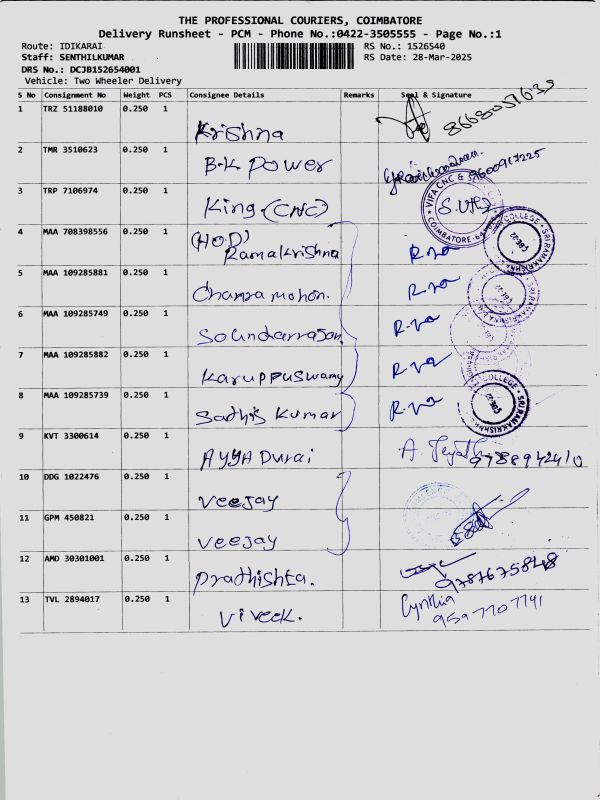 THE PROFESSIONAL COURIERS, COIMBATORE
Delivery Runsheet - PCM - Phone No.:0422-3505555 - Page No.:1
Route: IDIKARAI RS No.: 1526540
Staff: SENTHILKUMAR RS Date: 28-Mar-2025
DRS No.: DCJB152654001
Vehicle: Two Wheeler Delivery
S No Consignment No Weight PCS Consignee Details Remarks Seal & Signature
1 TRZ 51188010 0.250 1 Krishna
2 TMR 3510623 0.250 1 B.K Power 9600917225
3 TRP 7106974 0.250 1 King (CNC) VIFA CNC & COIMBATORE
4 MAA 708398556 0.250 1 (HOD) Ramakrishna COLLEGE SRI RAMAKRISHNA
5 MAA 109285881 0.250 1
6 MAA 109285749 0.250 1 Soundarrajan
7 MAA 109285882 0.250 1 Karuppuswamy
8 MAA 109285739 0.250 1 Sadhis Kumar COLLEGE SRI RAMAKRISHNA
9 KVT 3300614 0.250 1 AYYA Durai 9788942410
10 DDG 1022476 0.250 1 Veejay
11 GPM 450821 0.250 1 Veejay
12 AMD 30301001 0.250 1 Prathishta.
13 TVL 2894017 0.250 1 Viveek. Cynthia